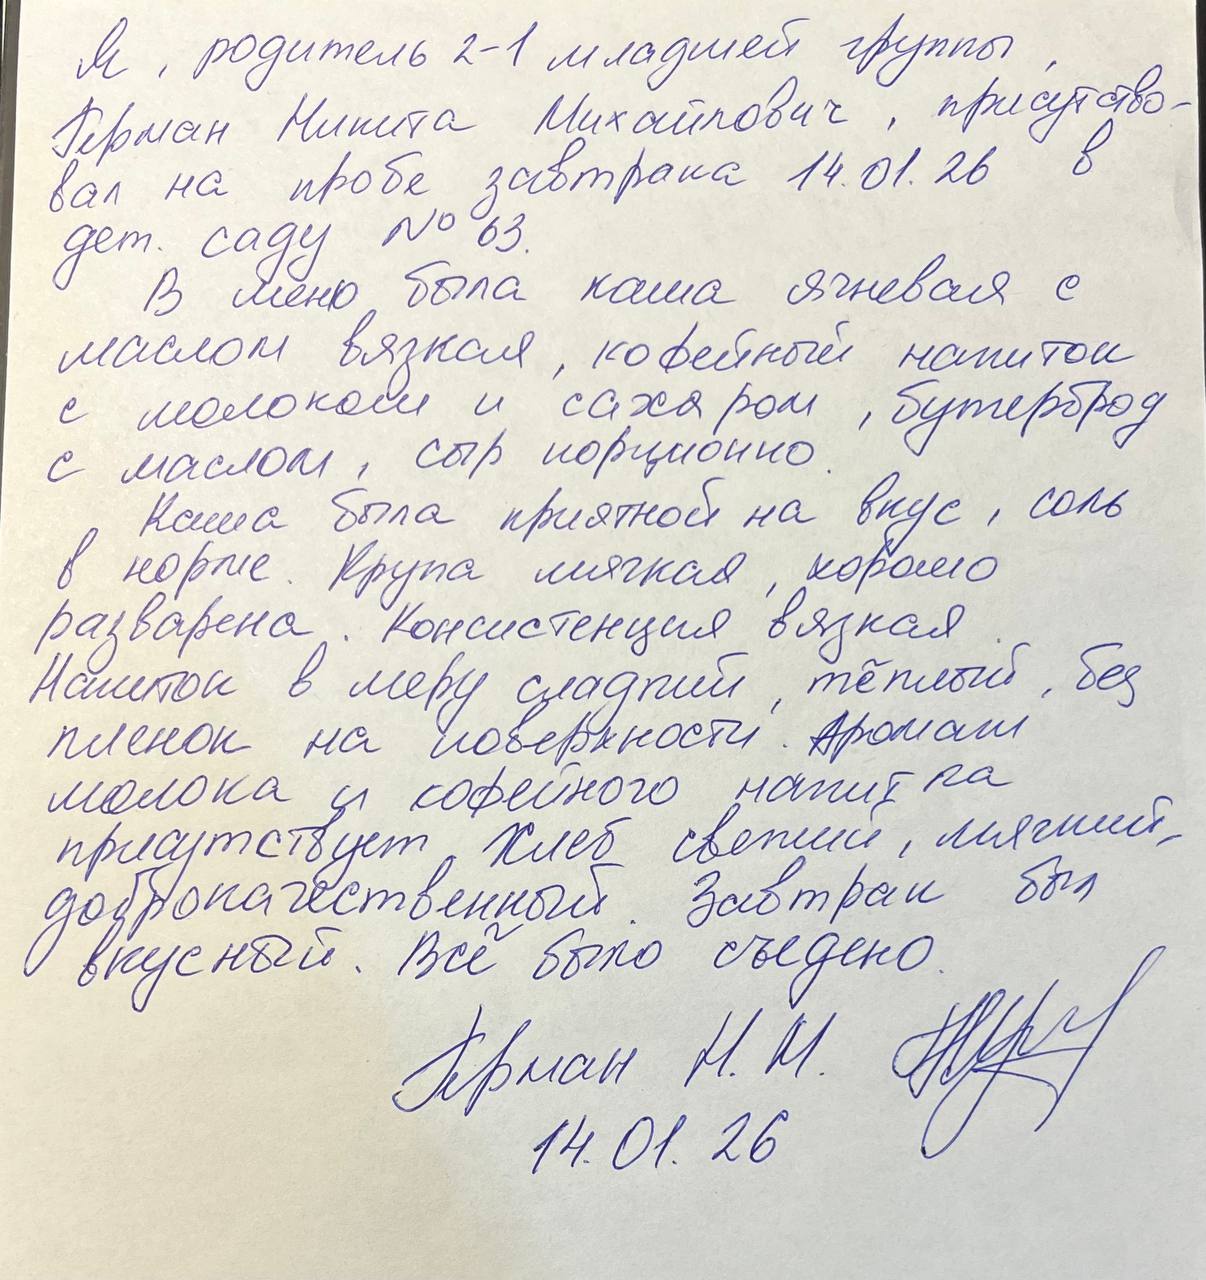 Я, родитель 2-1 младшей группы,
Герман Никита Михайлович, присутство-
вал на пробе завтрака 14.01.26 в
дет. саду № 63.
В меню была каша ячневая с
маслом вязкая, кофейный напиток
с молоком и сахаром, бутерброд
с маслом, сыр порционно.
Каша была приятной на вкус, соль
в норме. Крупа мягкая, хорошо
разварена. Консистенция вязкая.
Напиток в меру сладкий, тёплый, без
пленок на поверхности. Аромат
молока и кофейного напитка
присутствует. Хлеб свежий, мягкий,
доброкачественный. Завтрак был
вкусный. Всё было съедено.
Герман Н. М.
14.01.26